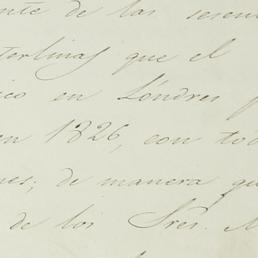 nte de las sesen
terlinas que el
ico en Londres p
en 1826, con tod
nes; de manera qu
de los Sres. M